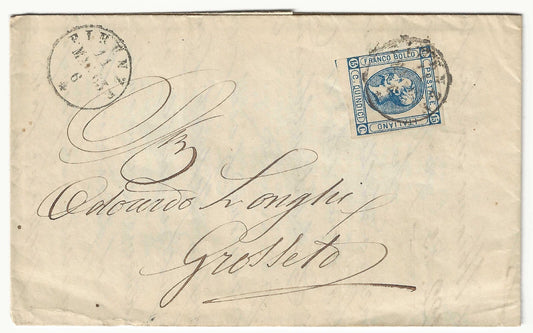 FIRENZE
11
6
FRANCO BOLLO
POSTALE
ITALIANO
C. QUINDICI
C 15
Edoardo Longhi
Grosseto